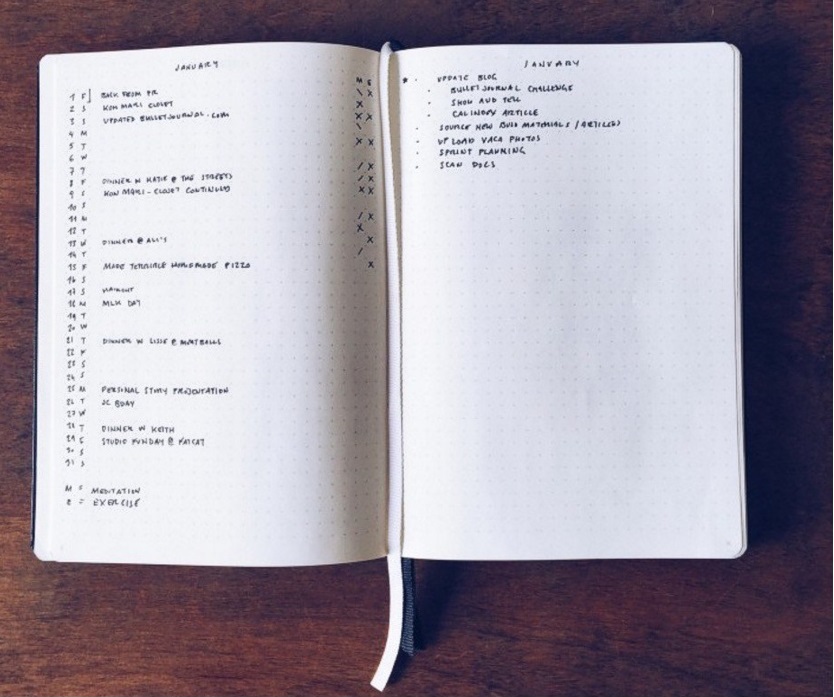 JANUARY
M E
1 F BACK FROM PR \ X
2 S KON MARI CLOSET X
3 S UPDATED BULLETJOURNAL.COM X X
4 M \
5 T X X
6 W
7 T / X
8 F DINNER W KATIE @ THE STREETS / X
9 S KON MARI - CLOSET CONTINUED X X
10 S
11 M / X
12 T X
13 W DINNER @ ALI'S X
14 T /
15 F MADE TERRIBLE HOMEMADE PIZZA X
16 S
17 S
18 M MLK DAY
19 T
20 W
21 T DINNER W @ MEATBALLS
22 F
23 S
24 S
25 M PERSONAL STORY PRESENTATION
26 T JC BDAY
27 W
28 T DINNER W KEITH
29 F STUDIO FUNDAY @ FATCAT
30 S
31 S
M = MEDITATION
E = EXERCISE
JANUARY
* · UPDATE BLOG
· BULLET JOURNAL CHALLENGE
· SHOW AND TELL
· ARTICLE
· SOURCE NEW BUJO MATERIALS / ARTICLES
· UPLOAD VACA PHOTOS
· SPRINT PLANNING
· SCAN DOCS